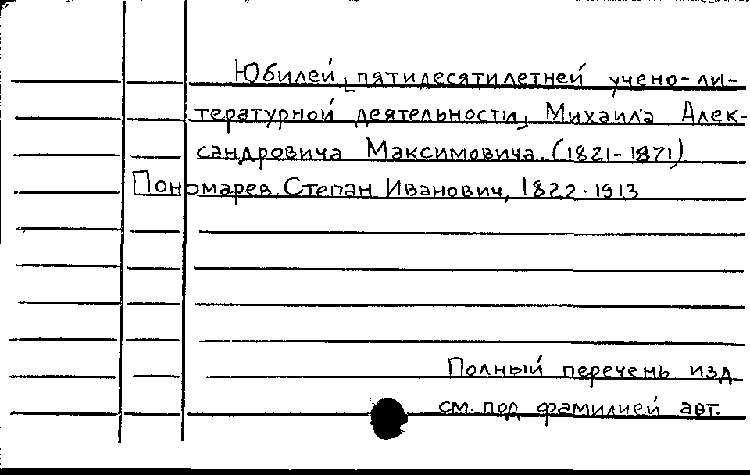 Юбилей пятидесятилетней учено-ли-
тературной деятельности Михаила Алек-
сандровича Максимовича. (1821-1871)
Пономарев Степан Иванович, 1822-1913
Полный перечень изд
см. под фамилией авт.